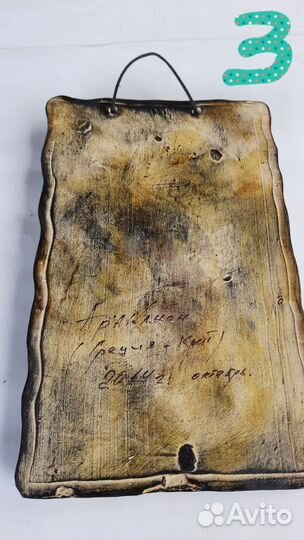 3
Ираклион
(Греция - Крит)
2014г. октябрь.
Avito